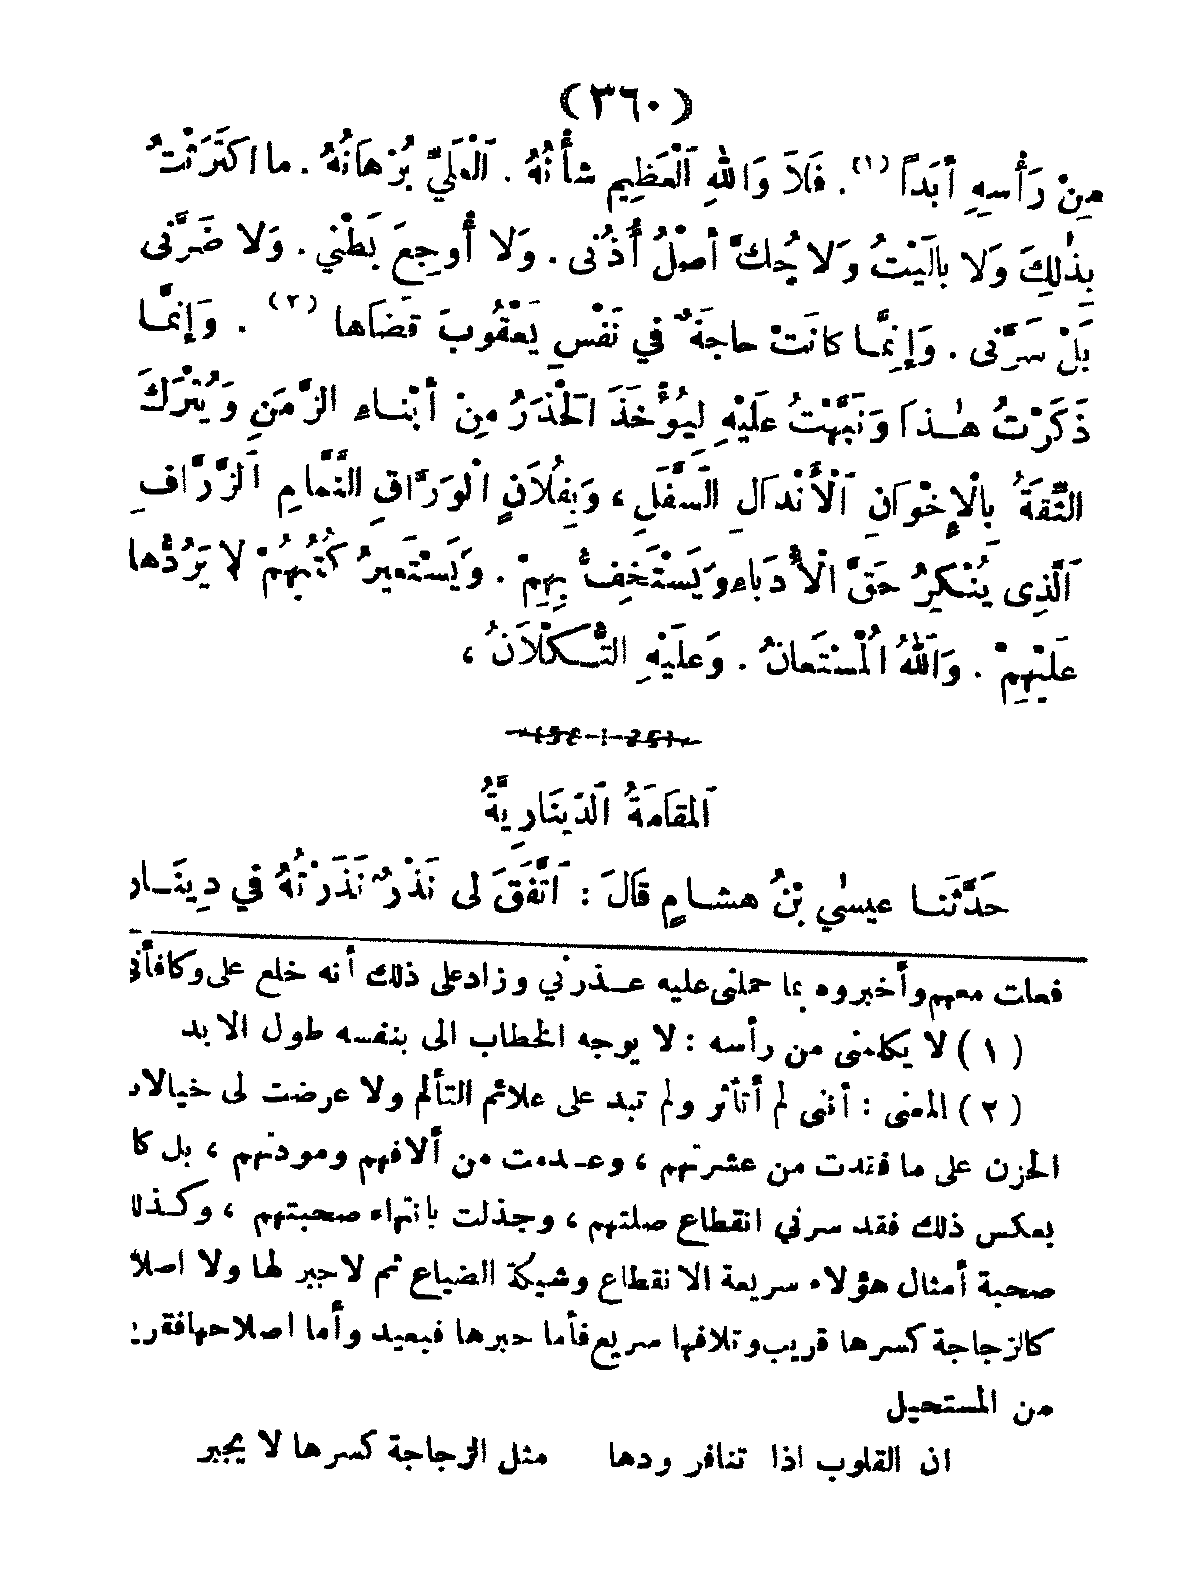 (٣٦٠)
مِنْ رَأْسِهِ أَبَداً (١) . فَلاَ وَاللهِ اَلْعَظِيمِ شأْنُهُ . اَلْعَلِيِّ بُرْهَانُهُ . ما اكتَرَثْتُ
بِذٰلِكَ وَلا بالَيْتُ وَلا حُكَّ أصْلُ أُذُنى . وَلا أُوجِعَ بَطْنِي . وَلا ضَرَّنى
بَلْ سَرَّنى . وَإِنَّمـا كانَتْ حاجَةٌ في نَفْسِ يَعْقُوبَ قضَاها (٢) . وَإنَّمـا
ذَكَرْتُ هٰـذا وَنَبَّهْتُ عَلَيْهِ لِيُؤْخَذَ اَلحْذَرُ مِنْ أبْنـاءِ الزَّمَنِ وَيُتْرَكَ
الثِّقةُ بِالْإِخْوَانِ اَلْأَنْذَالِ السَّفَلِ ، وَبِفُلاَنٍ الْوَرَّاقِ النَّمَّامِ اَلزَّرَّافِ
اَلَّذِى يُنْكِرُ حَقَّ الْأُدَباءِ وَيَسْتَخِفُّ بِهِمْ . وَيَسْتَعيرُ كُتُبَهُمْ لا يَرُدُّها
عَلَيْهِمْ . وَاَللهُ الْمُسْتَعانُ . وَعَلَيْهِ التُّـكْلَانُ ،
اَلمَقَامَةُ اَلدّينَارِيَّةُ
حَدَّثَنـا عيسٰي بْنُ هشـامٍ قالَ : اَتَّفَقَ لى نَذْرٌ نَذَرْتُهُ في دِينَـار
فعلت معهم وأخبروه بما حملنى عليه عـذرني وزاد على ذلك أنه خلع على وكافأنى
(١) لا يكلمنى من رأسه : لا يوجه الخطاب الى بنفسه طول الابد
(٢) المعنى : أننى لم أتأثر ولم تبد على علائم التألم ولا عرضت لى خيالات
الحزن على ما فقدت من عشرتهم ، وعـدمت من ألافهم ومودتهم ، بل كا
بعكس ذلك فقد سرني انقطاع صلتهم ، وجذلت بانتهاء صحبتهم ، وكـذلك
صحبة أمثال هؤلاء سريعة الانقطاع وشيكة الضياع ثم لا جبر لها ولا اصلا
كالزجاجة كسرها قريب وتلافها سريع فأما جبرها فبعيد وأما اصلاحها فقريب
من المستحيل
ان القلوب اذا تنافر ودها مثل الزجاجة كسرها لا يجبر